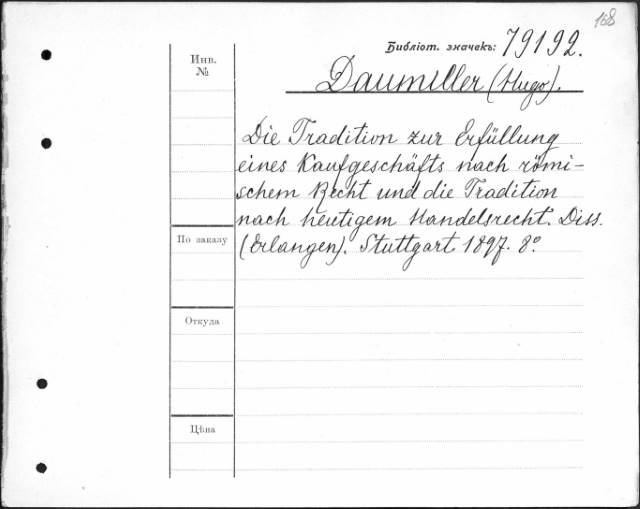 168
Библіот. значекъ: 79192.
Инв.
№
Daumiller (Hugo).
Die Tradition zur Erfüllung
eines Kaufgeschäfts nach römi-
schem Recht und die Tradition
nach heutigem Handelsrecht. Diss.
(Erlangen). Stuttgart 1897. 8º
По заказу
Откуда
Цѣна